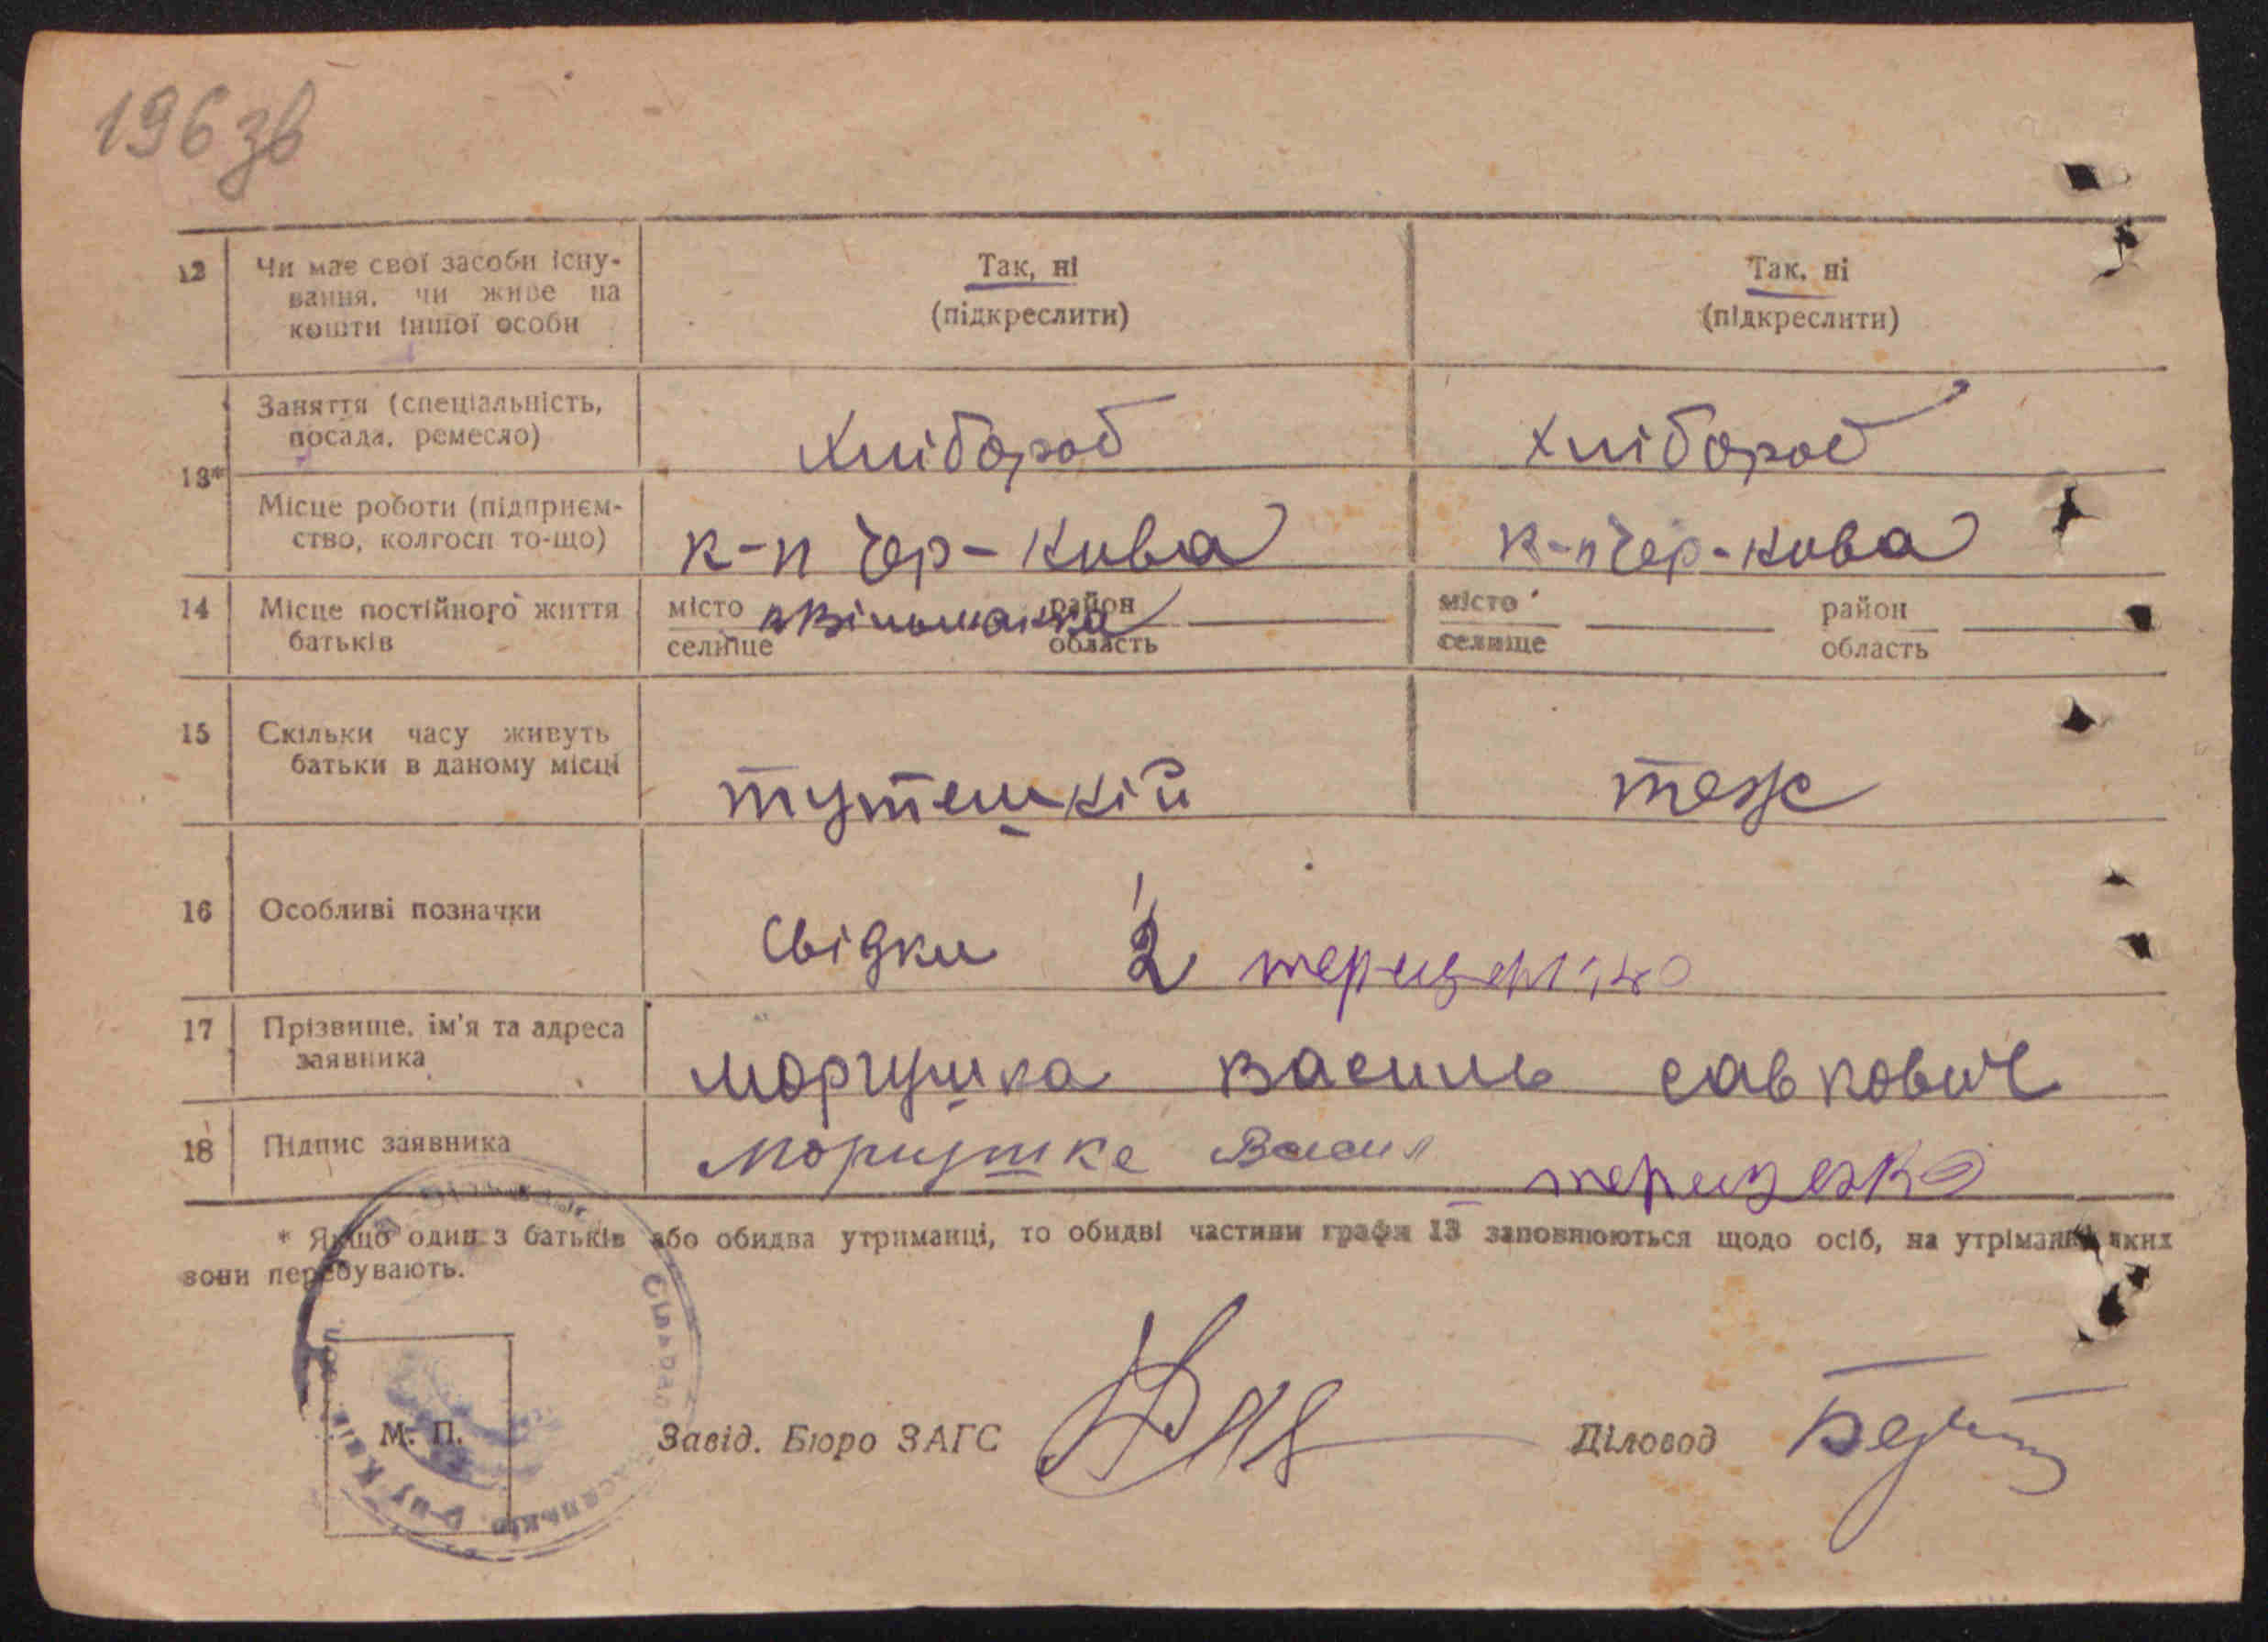 196 зв
12 Чи має свої засоби існу-
вання, чи живе на
кошти іншої особи
Так, ні
(підкреслити)
Так, ні
(підкреслити)
13*
Заняття (спеціальність,
посада, ремесло)
Хлібороб
Хлібороб
Місце роботи (підприєм-
ство, колгосп то-що)
к-п Чер-Нива
к-п Чер-Нива
14 Місце постійного життя
батьків
місто
селище
район
область
місто
селище
район
область
15 Скільки часу живуть
батьки в даному місці
тутешній
теж
16 Особливі позначки
Свідки 1
2
17 Прізвище, ім'я та адреса
заявника
Моргушка Василь Савкович
18 Підпис заявника
* Якщо один з батьків або обидва утриманці, то обидві частини графи 13 заповнюються щодо осіб, на утріманні яких
вони перебувають.
М. П.
Завід. Бюро ЗАГС
Діловод